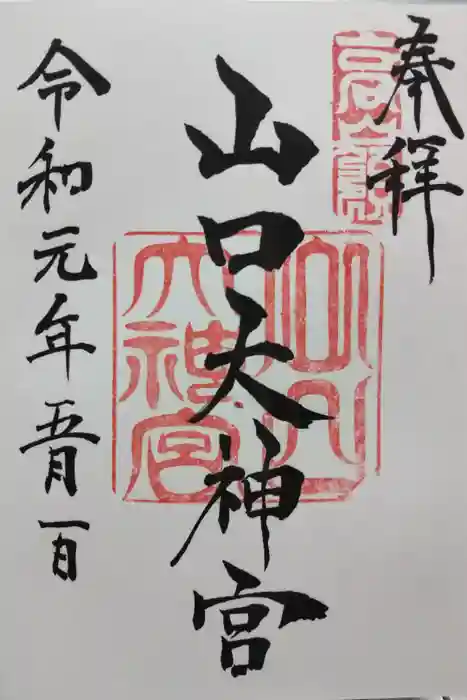 奉拝
山口天神宮
令和元年五月一日
山口
天神宮